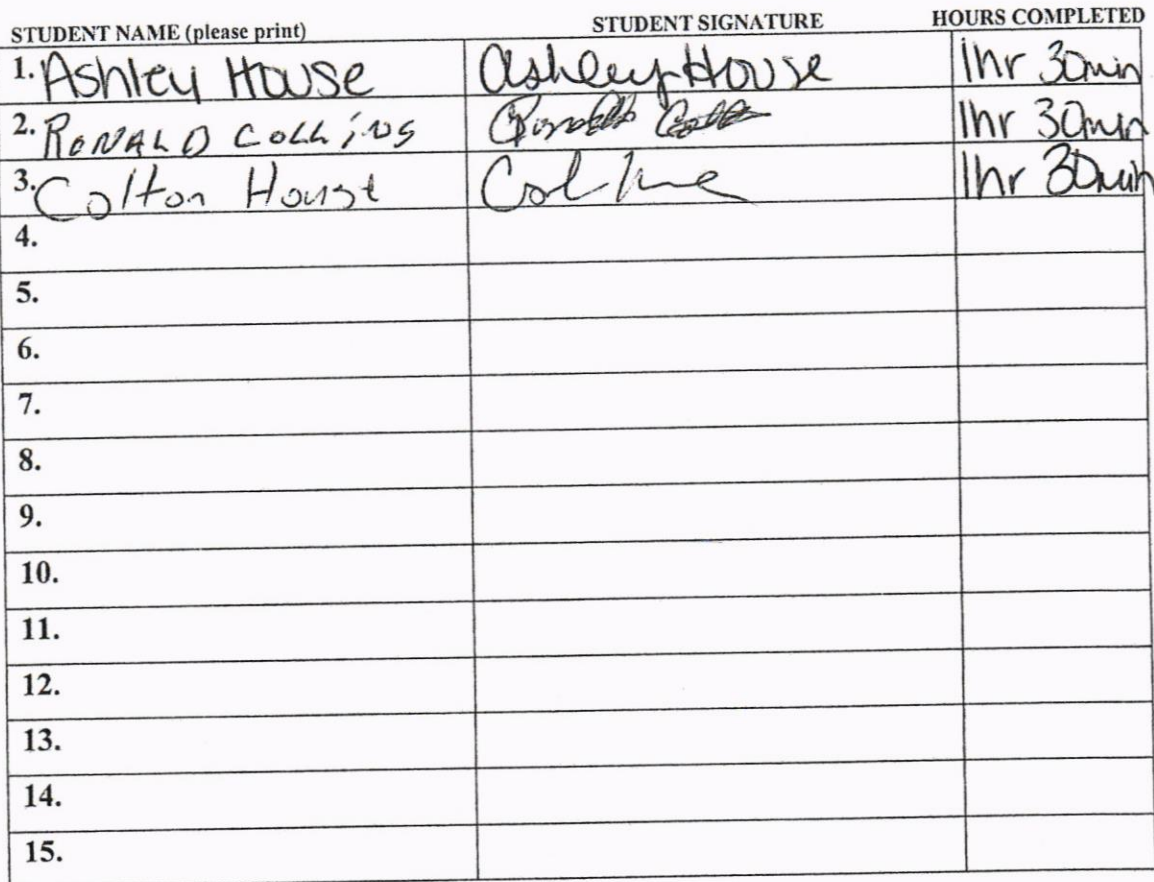 STUDENT NAME (please print) STUDENT SIGNATURE HOURS COMPLETED
1. Ashley House Ashley House 1hr 30min
2. RONALD COLLINS 1hr 30min
3. Colton House 1hr 30min
4.
5.
6.
7.
8.
9.
10.
11.
12.
13.
14.
15.